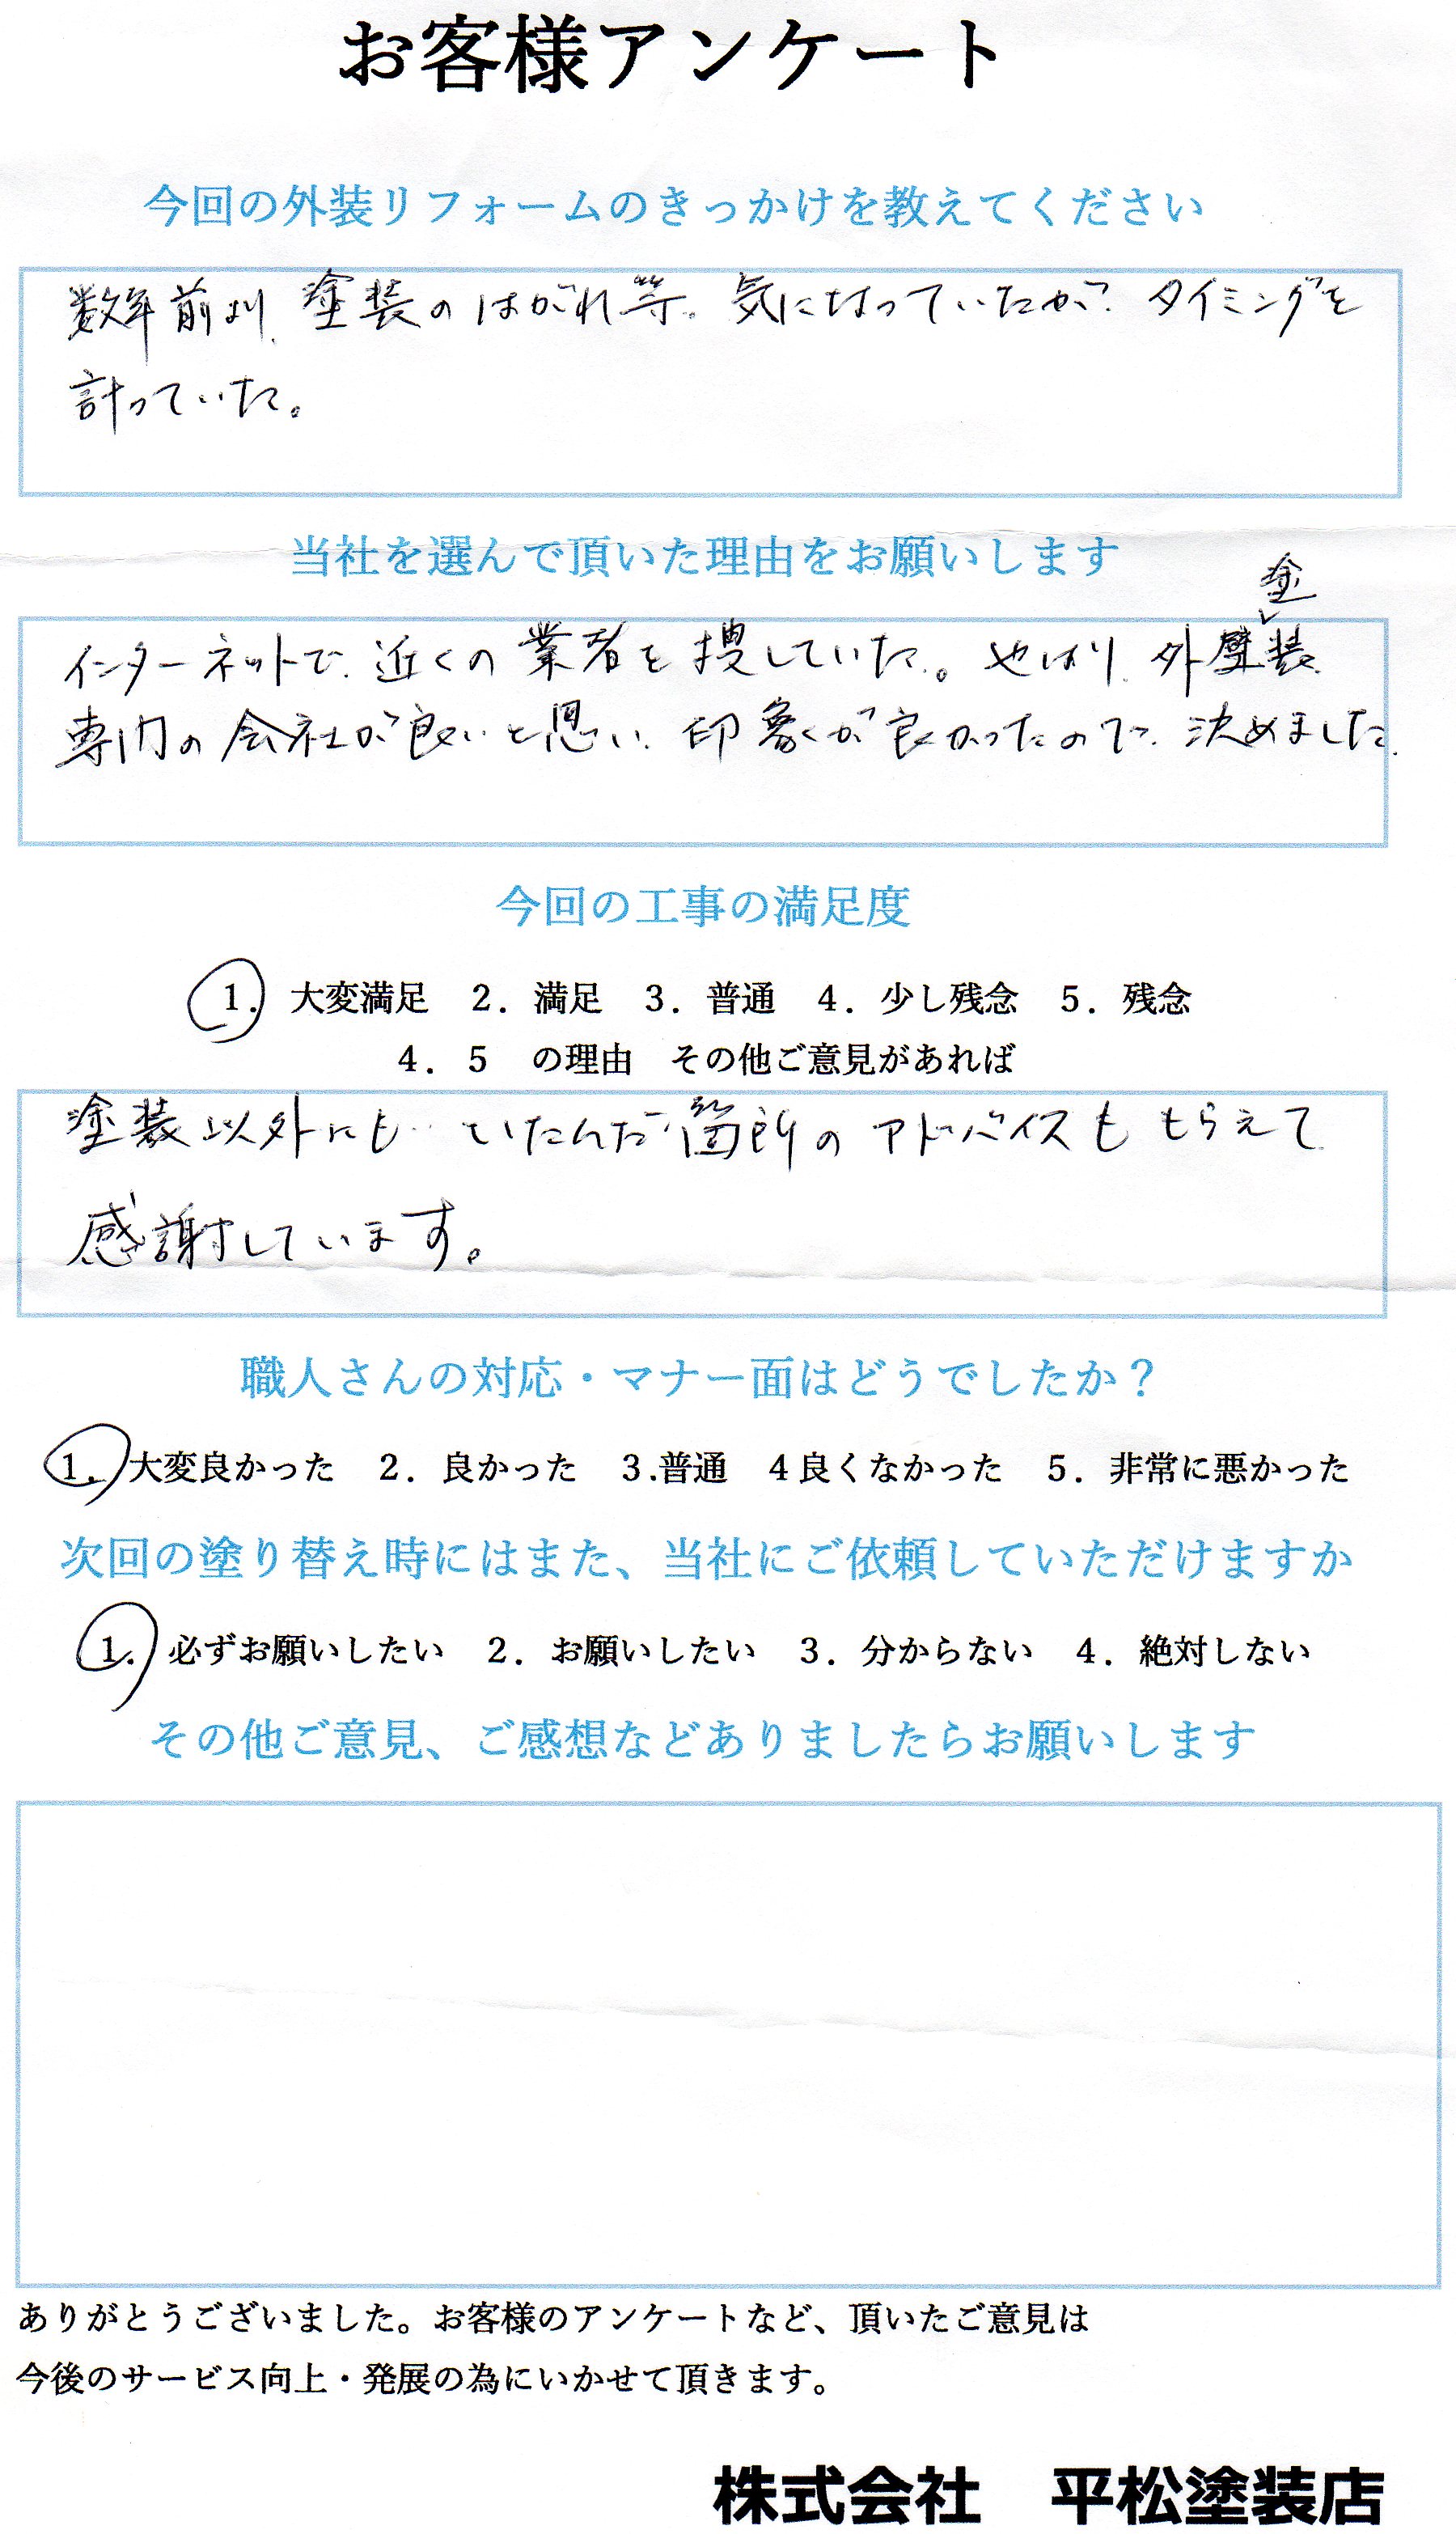 お客様アンケート
今回の外装リフォームのきっかけを教えてください
数年前より、塗装のはがれ等。気になっていたが、タイミングを
計っていた。
当社を選んで頂いた理由をお願いします
塗
インターネットで、近くの業者を捜していた。。やはり、外壁装、
専門の会社が良いと思い、印象が良かったので、決めました。
今回の工事の満足度
1. 大変満足 2. 満足 3. 普通 4. 少し残念 5. 残念
4. 5 の理由 その他ご意見があれば
塗装以外にも、いたんだ箇所のアドバイスももらえて
感謝しています。
職人さんの対応・マナー面はどうでしたか？
1. 大変良かった 2. 良かった 3.普通 4良くなかった 5. 非常に悪かった
次回の塗り替え時にはまた、当社にご依頼していただけますか
1. 必ずお願いしたい 2. お願いしたい 3. 分からない 4. 絶対しない
その他ご意見、ご感想などありましたらお願いします
ありがとうございました。お客様のアンケートなど、頂いたご意見は
今後のサービス向上・発展の為にいかせて頂きます。
株式会社 平松塗装店